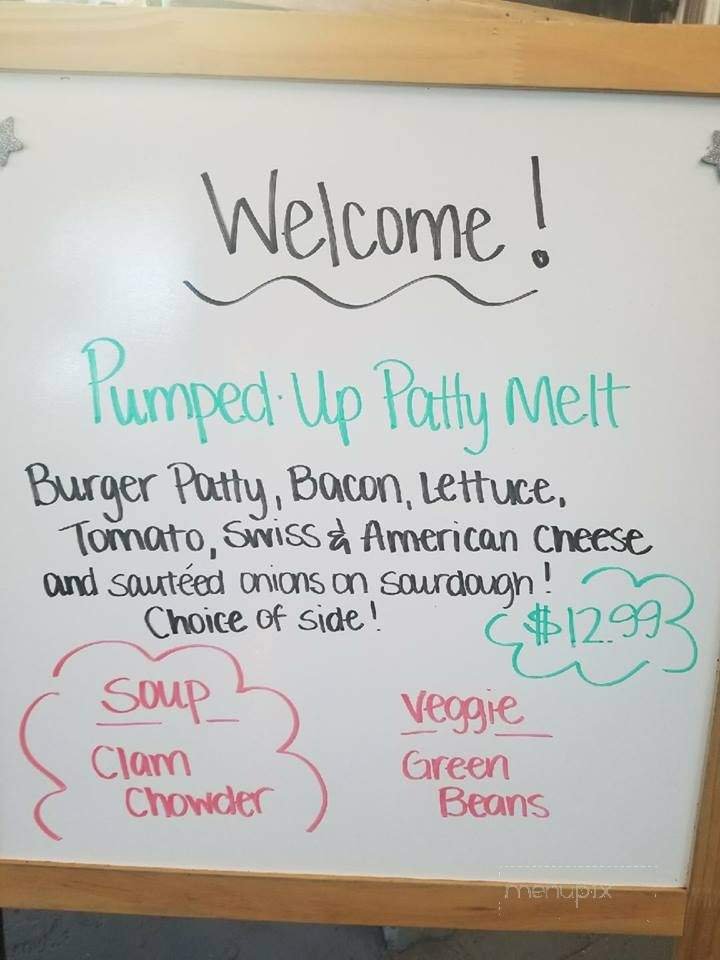 Welcome!
Pumped-Up Patty Melt
Burger Patty, Bacon, Lettuce,
Tomato, Swiss & American Cheese
and sautéed onions on sourdough!
Choice of side!
$12.99
Soup
Clam
Chowder
Veggie
Green
Beans
menupix